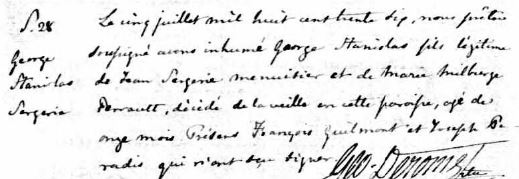 S. 28
George
Stanislas
Sergerie
Le cinq juillet mil huit cent trente six, nous prêtre
soussigné avons inhumé George Stanislas fils légitime
de Jean Sergerie menuisier et de Marie Milberge
Perrault, décédé de la veille en cette paroisse, agé de
onze mois. Présens François Guilmont et Joseph Pa-
radis qui n'ont sçu signer.
Geo. Derome